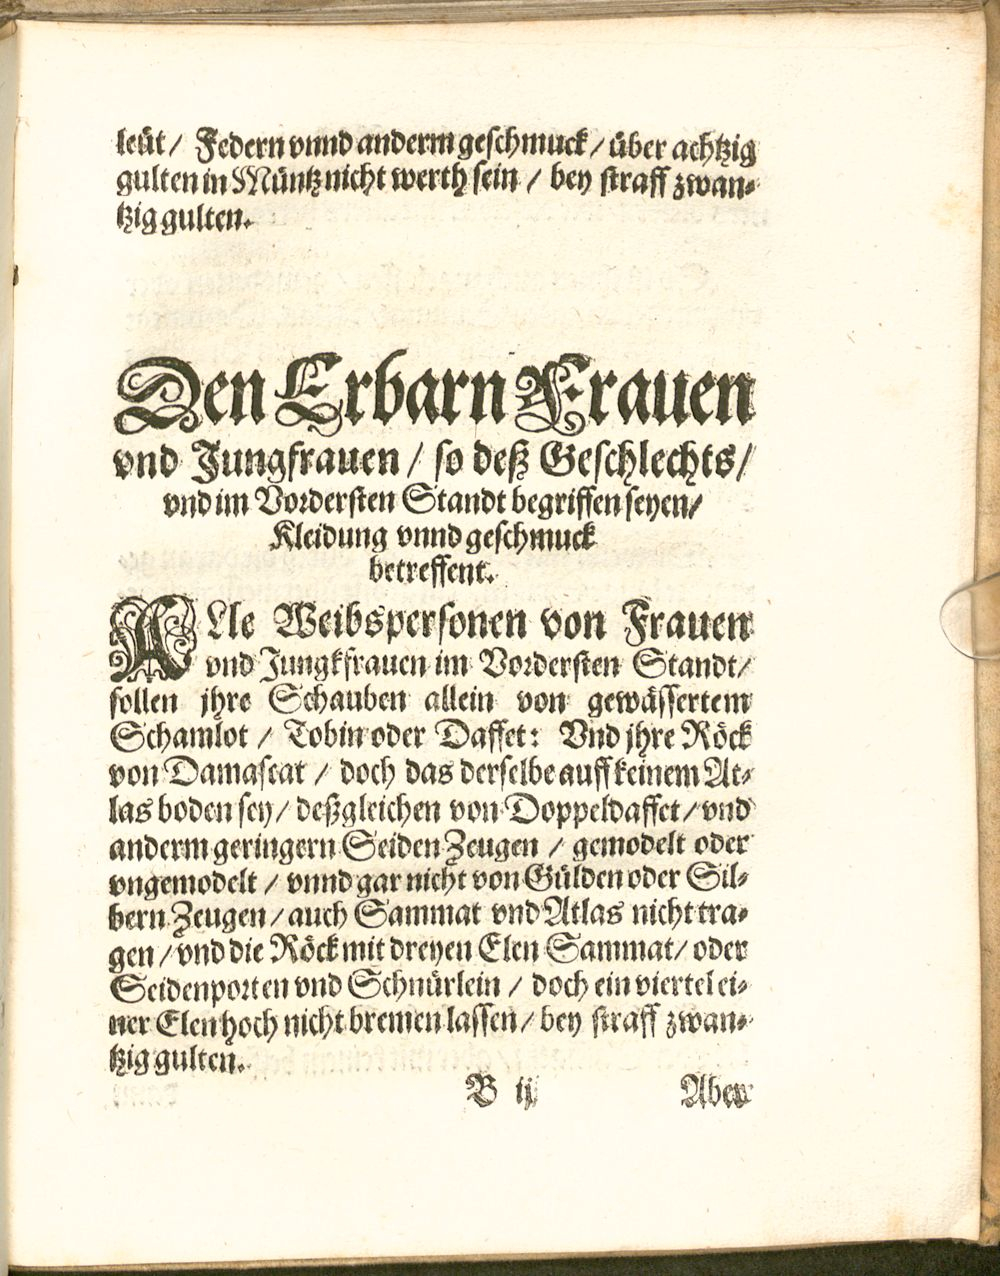 leüt / Federn vnnd anderm geschmuck / über achtzig
gulten in Müntz nicht werth sein / bey straff zwan-
tzig gulten.
Den Erbarn Frauen
vnd Jungfrauen / so deß Geschlechts /
vnd im Vordersten Standt begriffen seyen /
Kleidung vnnd geschmuck
betreffent.
ALle Weibspersonen von Frauen
vnd Jungkfrauen im Vordersten Standt /
sollen jhre Schauben allein von gewässertem
Schamlot / Tobin oder Daffet: Vnd jhre Röck
von Damascat / doch das derselbe auff keinem At-
las boden sey / deßgleichen von Doppeldaffet / vnd
anderm geringern Seiden Zeugen / gemodelt oder
vngemodelt / vnnd gar nicht von Gülden oder Sil-
bern Zeugen / auch Sammat vnd Atlas nicht tra-
gen / vnd die Röck mit dreyen Elen Sammat / oder
Seidenporten vnd Schnürlein / doch ein viertel ei-
ner Elen hoch nicht bremen lassen / bey straff zwan-
tzig gulten.
B ij Aber